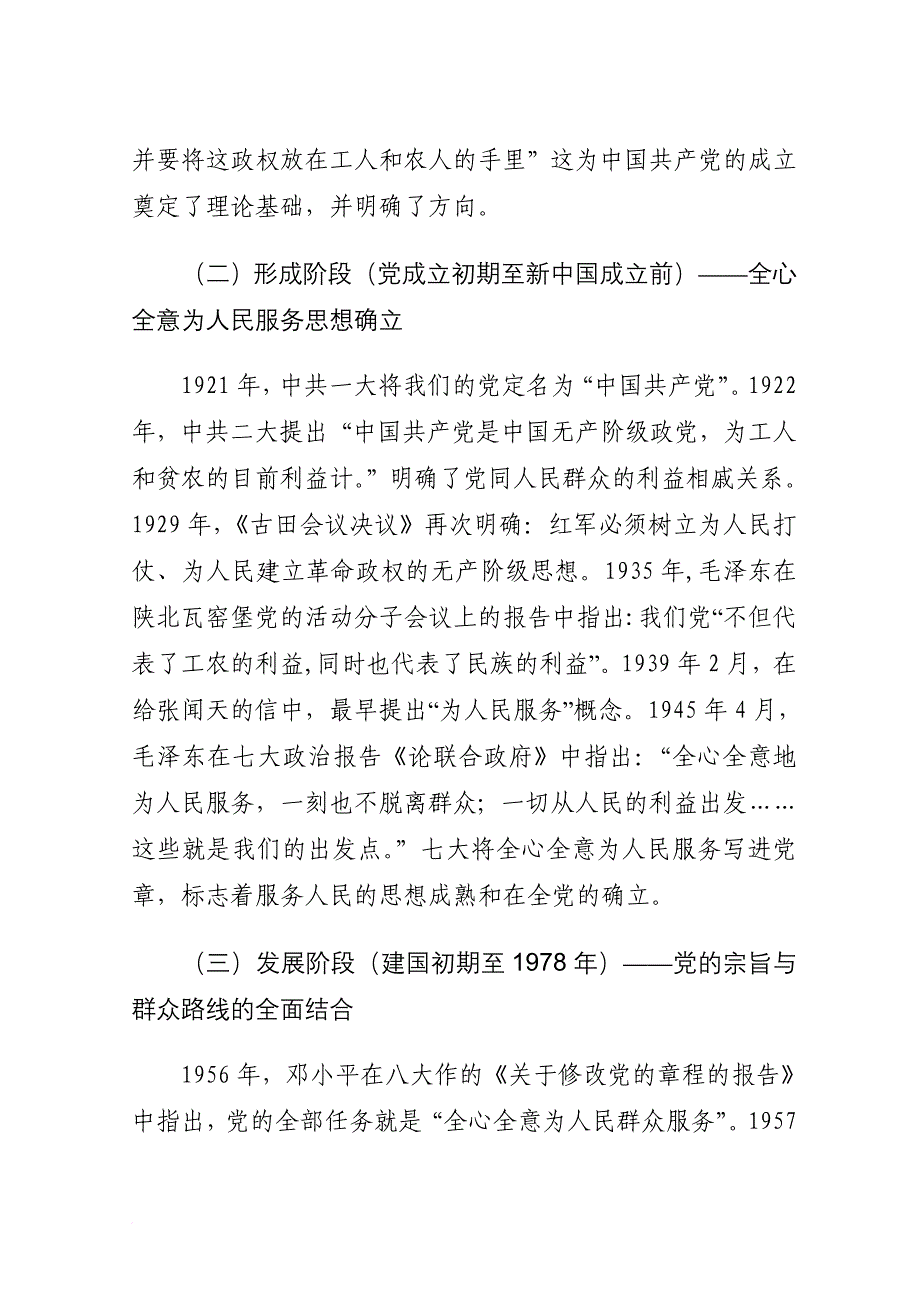 并要将这政权放在工人和农人的手里”这为中国共产党的成立
奠定了理论基础，并明确了方向。
（二）形成阶段（党成立初期至新中国成立前）——全心
全意为人民服务思想确立
1921 年，中共一大将我们的党定名为“中国共产党”。1922
年，中共二大提出“中国共产党是中国无产阶级政党，为工人
和贫农的目前利益计。”明确了党同人民群众的利益相戚关系。
1929 年，《古田会议决议》再次明确：红军必须树立为人民打
仗、为人民建立革命政权的无产阶级思想。1935 年, 毛泽东在
陕北瓦窑堡党的活动分子会议上的报告中指出: 我们党“不但代
表了工农的利益, 同时也代表了民族的利益”。1939 年 2 月，在
给张闻天的信中，最早提出“为人民服务”概念。1945 年 4 月，
毛泽东在七大政治报告《论联合政府》中指出：“全心全意地
为人民服务，一刻也不脱离群众；一切从人民的利益出发……
这些就是我们的出发点。”七大将全心全意为人民服务写进党
章，标志着服务人民的思想成熟和在全党的确立。
（三）发展阶段（建国初期至 1978 年）——党的宗旨与
群众路线的全面结合
1956 年，邓小平在八大作的《关于修改党的章程的报告》
中指出，党的全部任务就是“全心全意为人民群众服务”。1957